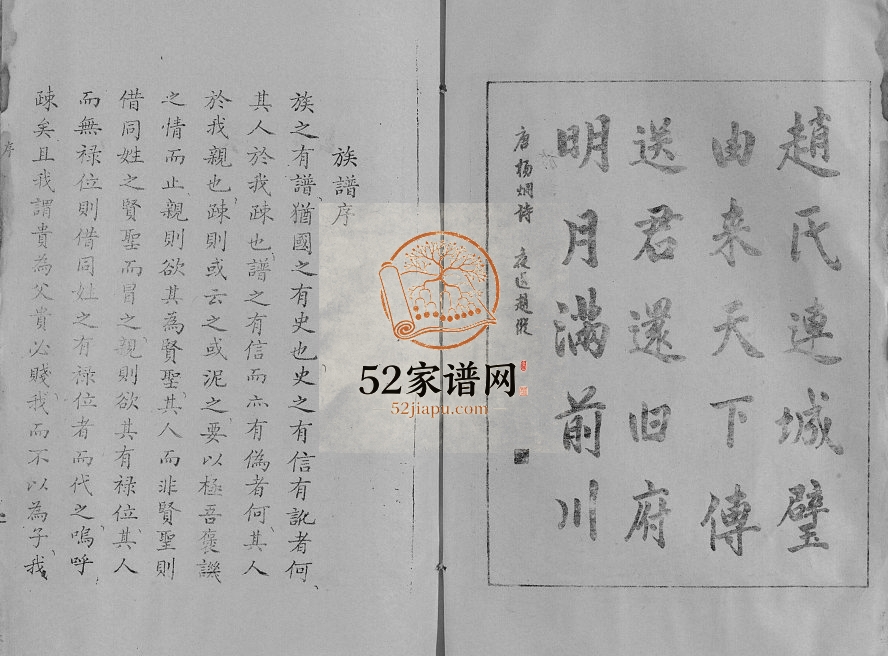 趙氏連城璧
由来天下傳
送君還旧府
明月滿前川
唐楊炯詩 夜送趙縱
族譜序
族之有譜猶國之有史也史之有信有訛者何
其人於我疎也譜之有信而亦有偽者何其人
於我親也疎則或云之或泥之要以極吾褒譏
之情而止親則欲其為賢聖其人而非賢聖則
借同姓之賢聖而冒之親則欲其有祿位其人
而無祿位則借同姓之有祿位者而代之嗚呼
疎矣且我謂貴為父貴必賤我而不以為子我
序
52家谱网
52jiapu.com